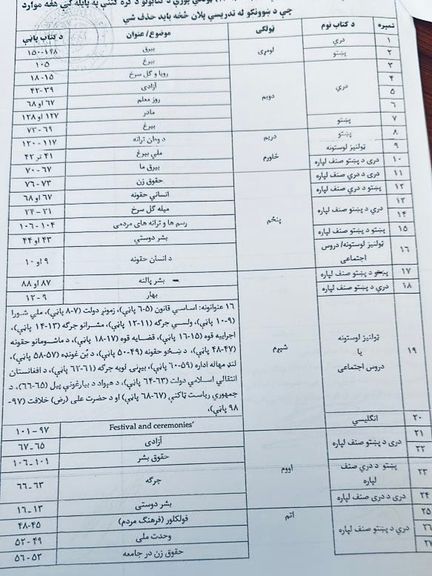 چې د ښوونکو له تدریسي پلان څخه باید حذف شي
نمبره د کتاب نوم ټولګی موضوع / عنوان د کتاب پاڼې
۱ دري لومړی بیرق ۱۵۰-۱۴۸
۲ پښتو بیرغ ۱۰۵
۳ دري دویم رویا و گل سرخ ۱۸-۱۵
۴ آزادی ۴۲-۳۹
۵ روز معلم ۶۷ او ۶۸
۶ مادر ۱۲۷ او ۱۲۸
۷ پښتو بیرغ ۷۲-۶۹
۸ پښتو دریم د وطن ترانه ۱۲۰-۱۱۷
۹ ټولنیز لوستونه څلورم ملي بیرغ ۴۱ تر ۴۲
۱۰ دری د پښتو صنف لپاره بیرق ما ۷۰-۶۷
۱۱ دری د دري صنف لپاره پنځم حقوق زن ۷۶-۷۳
۱۲ پښتو د دري صنف لپاره انساني حقونه ۶۷ او ۶۸
۱۳ دري د دري صنف لپاره میله گل سرخ ۲۴-۲۱
۱۴ رسم ها و ترانه های مردمی ۱۰۶-۱۰۴
۱۵ پښتو د پښتو صنف لپاره بشر دوستي ۴۳ او ۴۴
۱۶ ټولنیز لوستونه/ دروس اجتماعی د انسان حقونه ۹ او ۱۰
۱۷ پښتو د پښتو صنف لپاره شپږم بشر پالنه ۸۷ او ۸۸
۱۸ دري د پښتو صنف لپاره بهار ۱۲-۹
۱۹ ټولنیز لوستونه
یا
دروس اجتماعی
۱۶ عنوانونه: اساسي قانون (۵-۶ پاڼې)، زمونږ دولت (۷-۸ پاڼې)، ملي شورا
(۹-۱۰ پاڼې)، ولسي جرګه (۱۱-۱۲ پاڼې)، مشرانو جرګه (۱۳-۱۴ پاڼې)،
اجراییه قوه (۱۵-۱۶ پاڼې)، قضاییه قوه (۱۷-۱۸ پاڼې)، د ماشومانو حقونه
(۴۷-۴۸ پاڼې)، د ښځو حقونه (۴۹-۵۰ پاڼې)، د بُن غونډه (۵۷-۵۸ پاڼې)،
لنډ مهاله اداره (۵۹-۶۰ پاڼې)، بیړنۍ لویه جرګه (۶۱-۶۲ پاڼې)، د افغانستان
انتقالي اسلامي دولت (۶۳-۶۴ پاڼې)، د هېواد د بیارغونې پیل (۶۵-۶۶)، د
جمهوري ریاست ټاکنې (۶۷-۶۸ پاڼې) او د حضرت علی (رض) خلافت (۹۷-
۹۸ پاڼې)،
۲۰ انګلیسي Festival and ceremonies' ۱۰۱-۹۷
۲۱ دری د پښتو صنف لپاره اووم آزادی ۶۷-۶۵
۲۲ حقوق بشر ۱۰۶-۱۰۱
۲۳ پښتو د دری صنف لپاره جرګه ۶۶-۶۳
۲۴ دری د دری صنف لپاره بشر دوستی ۱۶-۱۳
۲۵ دري د پښتو صنف لپاره اتم فولکلور (فرهنگ مردم) ۴۸-۴۵
۲۶ وحدت ملی ۵۲-۴۹
۲۷ حقوق زن در جامعه ۵۶-۵۳